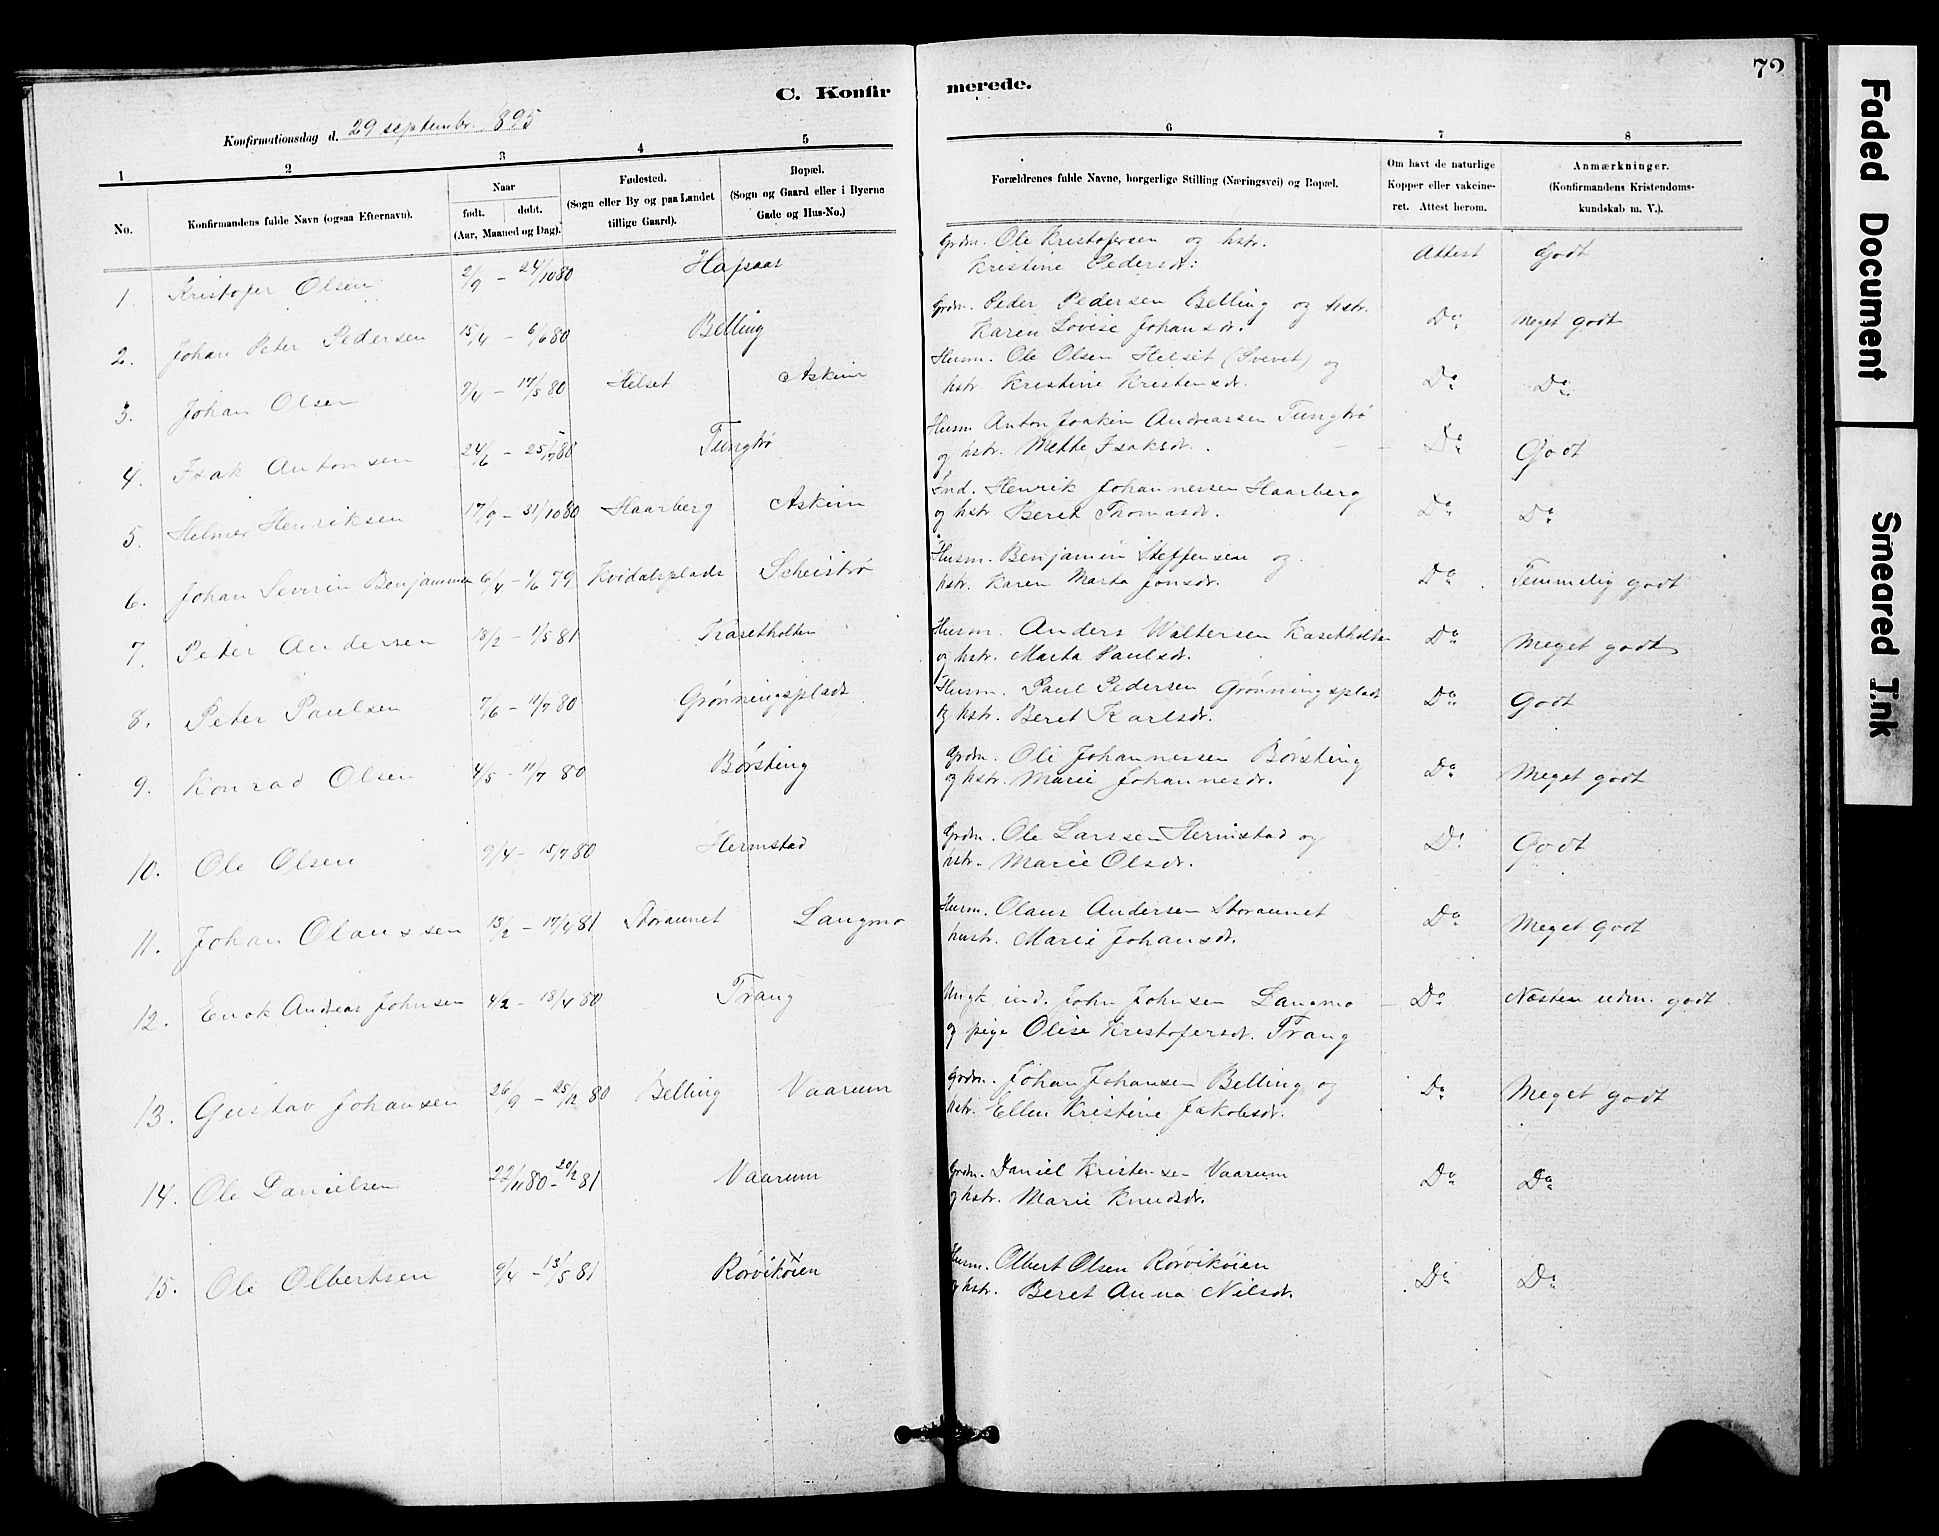 72
C. Konfirmerede.
Konfirmationsdag d. 29 septembr. 1895
1 2 3 4 5 6 7 8
No.
Konfirmandens fulde Navn (ogsaa Efternavn).
Naar
født. døbt.
(Aar, Maaned og Dag).
Fødested.
(Sogn eller By og paa Landet
tillige Gaard).
Bopæl.
(Sogn og Gaard eller i Byerne
Gade og Hus-No.)
Forældrenes fulde Navne, borgerlige Stilling (Næringsvei) og Bopæl.
Om havt de naturlige
Kopper eller vakcine-
ret. Attest herom.
Anmærkninger.
(Konfirmandens Kristendoms-
kundskab m. V.).
1. Kristofer Olsen 2/9 - 24/10 80
Grdm. Ole Kristofersen og hstr. Attest Godt
Kristine Pedersdt:
2. Johan Peter Pedersen 15/4 - 6/6 80 Belling
Grdm. Peder Pedersen Belling og hstr. Do Meget godt
Karen Lovise Johansdt.
3. Johan Olsen 17/5 80 Helset Askim
Husm. Ole Olsen Helset og Do Do
hstr. Kristine Kristensdt.
4. Isak Antonsen 24/6 - 80 Tungtrø
Husm. Anton Joakim Andreassen Tungtrø Do Godt
og hstr. Mette Isaksdt.
5. Helmer Henriksen 17/9 - 31/10 80 Haarberg Askim
Ind. Henrik Johannessen Haarberg Do Do
og hstr. Beret Thomasdt.
6. Johan Severin Benjaminsen 6/4 - 1/6 79 Kvidalsplads
Husm. Benjamin Steffensen og Do Temmelig godt
hstr. Karen Marta Jonsdt.
7. Peter Andersen 18/2 - 1/5 81 Kasetholten
Husm. Anders Waltersen Kasetholten Do Meget godt
og hstr. Marta Paulsdt.
8. Peter Paulsen 7/6 - 11/7 80 Grønningsplads
Husm. Paul Pedersen Grønningsplads Do Godt
og hstr. Beret Karlsdt.
9. Konrad Olsen 4/5 - 11/7 80 Børsting
Grdm. Ole Johannessen Børsting Do Meget godt
og hstr. Marie Johannesdt.
10. Ole Olsen 9/4 - 15/7 80 Hermstad
Grdm. Ole Larssen Hermstad og Do Godt
hstr. Marie Olsdt.
11. Johan Olaussen 13/2 - 17/4 81 Storaunet Langmo
Husm. Olaus Andersen Storaunet Do Meget godt
hustr. Marie Johansdt.
12. Enok Andreas Johnsen 4/2 - 18/4 80 Trang
Ungk. ind. John Johnsen Langmo Do Næsten udm. godt
og pige Olise Kristofersdt. Trang
13. Gustav Johansen 26/9 - 25/12 80 Belling Vaarum
Grdm. Johan Johansen Belling og Do Meget godt
hstr. Ellen Kristine Jakobsdt.
14. Ole Danielsen 22/11 80 - 20/2 81 Vaarum
Grdm. Daniel Kristensen Vaarum Do Do
og hstr. Marie Knudsdt.
15. Ole Olbertsen 9/4 - 13/5 81 Rørvikøien
Husm. Olbert Olsen Rørvikøien Do Do
og hstr. Beret Anna Nilsdt.
Faded Document
Smeared Ink